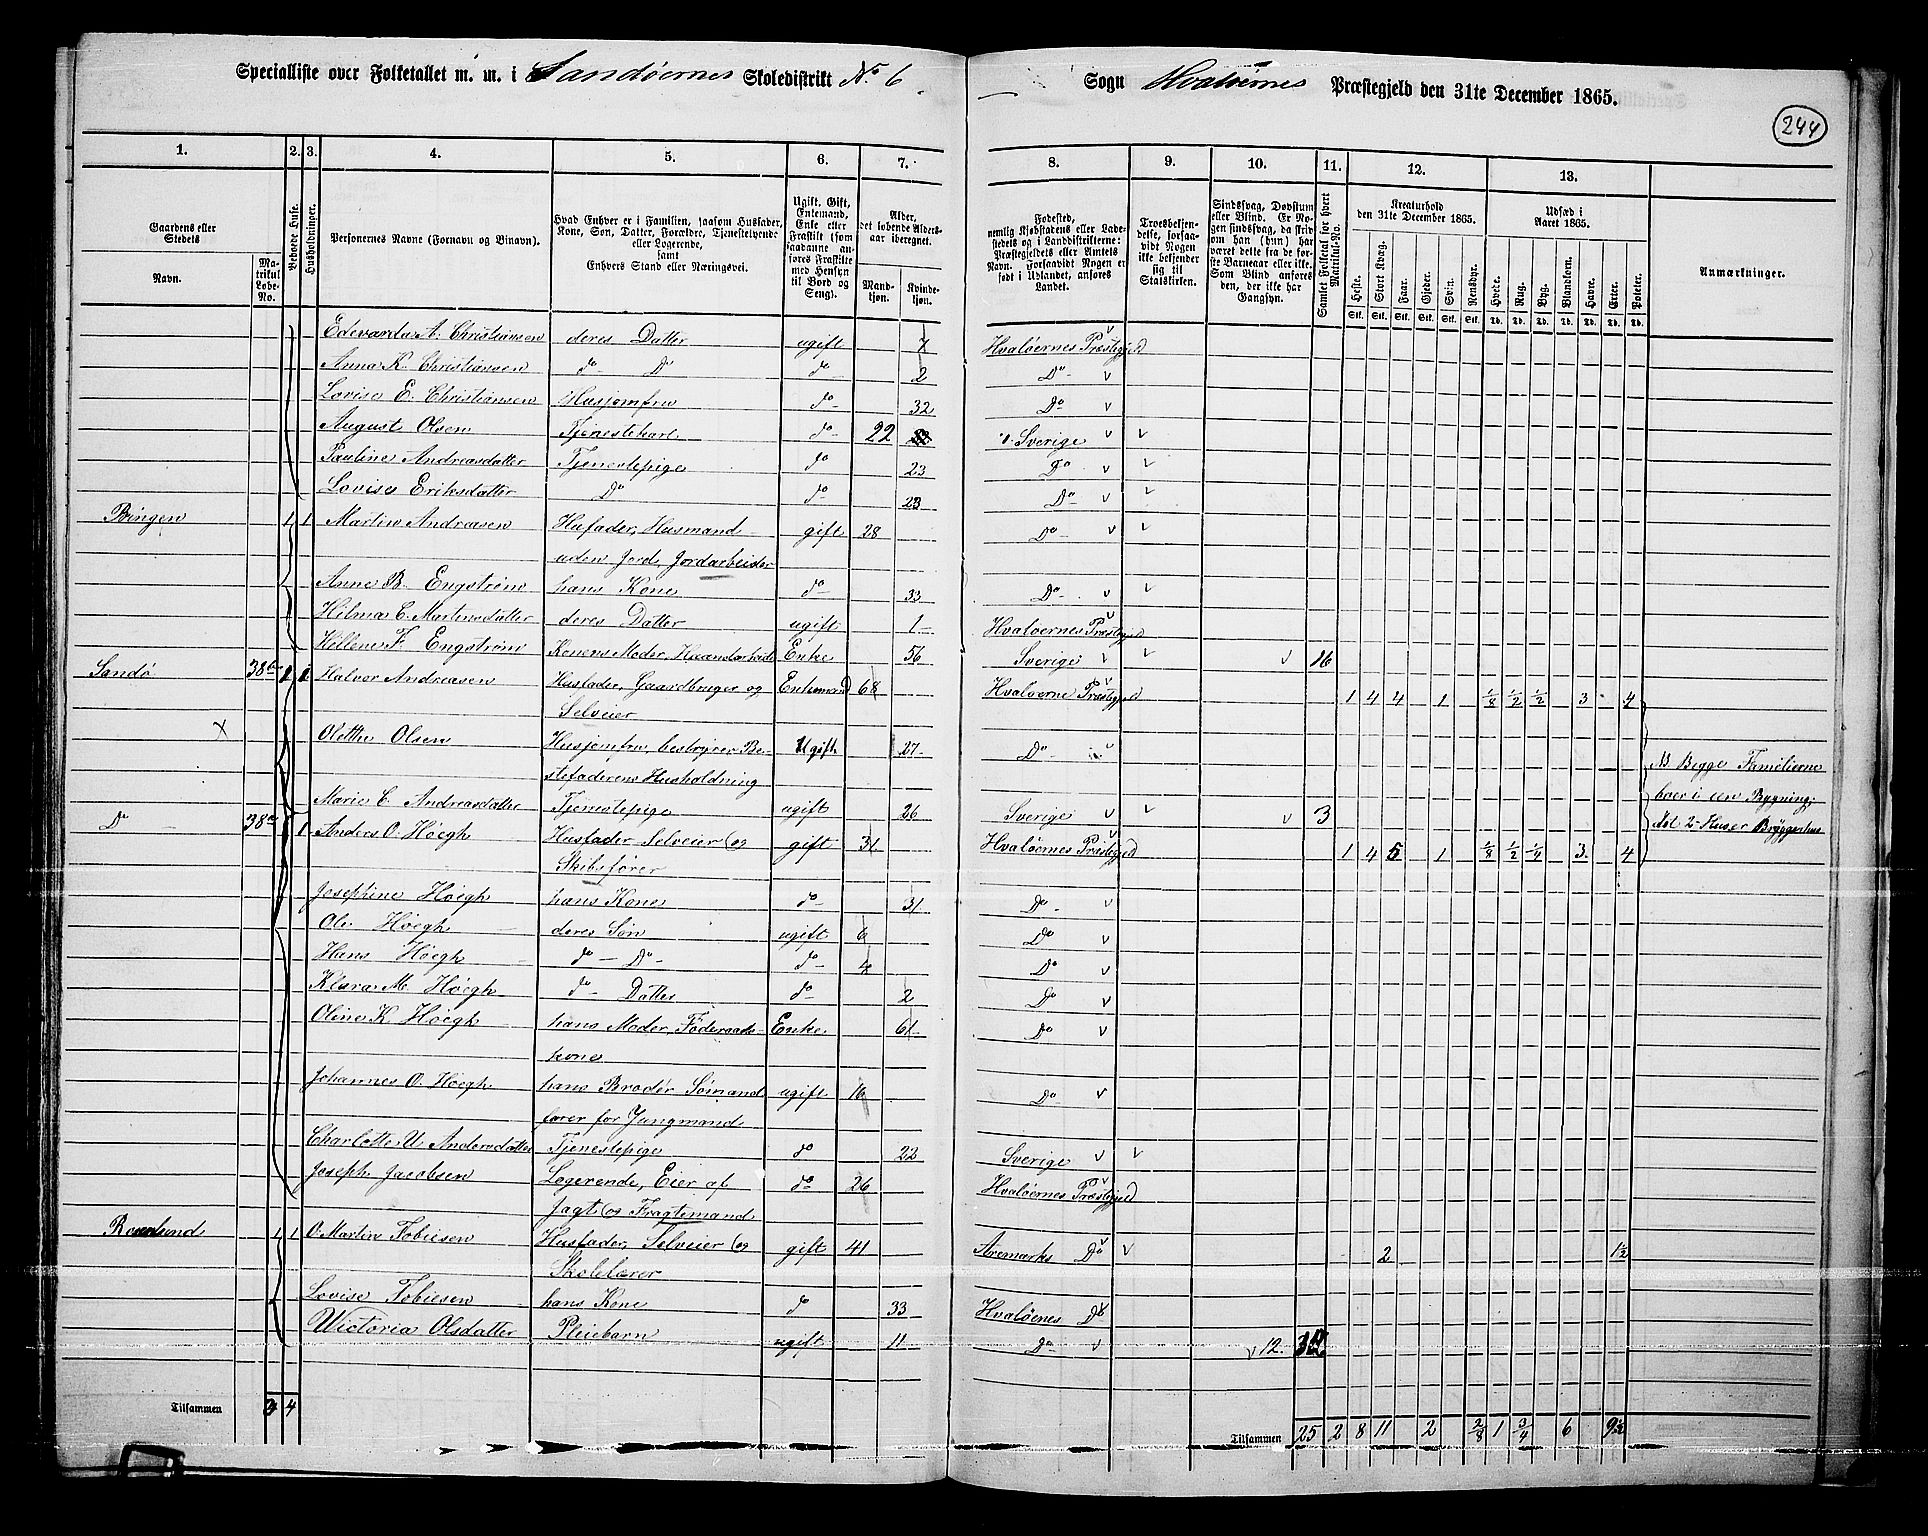 Specialliste over Folketallet m. m. i Sandøernes Skoledistrikt No 6
Sogn Hvaløernes Præstegjeld den 31te December 1865.
244
1. 2. 3. 4. 5. 6. 7. 8. 9. 10. 11. 12. 13.
Gaardens eller Stedets
Navn.
Matrikul Løbe-No.
Beboede Huse.
Husholdninger.
Personernes Navne (Fornavn og Binavn).
Hvad Enhver er i Familien, saasom Husfader, Kone, Søn, Datter, Forældre, Tjenestetyende eller Logerende, samt
Enhvers Stand eller Næringsvei.
Ugift, Gift, Enkemand, Enke eller Fraskilt (som saadanne anføres Fraskilte med Hensyn til Bord og Seng).
Alder, det løbende Aldersaar iberegnet.
Mandkjøn. Kvindekjøn.
Fødested, nemlig Kjøbstadens eller Ladestedets og i Landdistrikterne: Præstegjeldets eller Amtets Navn. Forsaavidt Nogen er født i Udlandet, anføres Landet.
Troesbekjendelse, forsaavidt Nogen ikke bekjender sig til Statskirken.
Sindssvag, Døvstum eller Blind. Er Nogen sindssvag, da skriv om han (hun) har været dette fra de første Barneaar eller ikke. Som Blind anføres den, der ikke har Gangsyn.
Samlet Folketal for hvert Matrikul-No.
Kreaturhold den 31te December 1865.
Heste. Stort Kvæg. Faar. Gjeder. Svin. Rensdyr.
Udsæd i Aaret 1865.
Hvede. Rug. Byg. Blandkorn. Havre. Erter. Poteter.
Stk. Stk. Stk. Stk. Stk. Stk. Td. Td. Td. Td. Td. Td. Td.
Anmærkninger.
Edevarda A. Christiansen deres Datter ugift 7 Hvaløernes Præstegjed
Anna K. Christiansen do D do 2 Do
Lovise E. Christiansen Husjomfru do 32 Do
August Olsen Tjenestekarl do 22 Sverige
Pauline Andreasdatter Tjenestepige do 23 Do
Lovise Eriksdatter Do do 23 Do
Bingen 1 1 Martin Andreasen Husfader, Husmand gift 28 Do
uden Jord, Jordarbeider
Anne B. Engstrøm hans Kone do 33 Do
Hilma C. Martinsdatter deres Datter ugift 1 Hvaløernes Præstegjed
Hellene F. Engstrøm Konens Moder, Haandarbeide Enke 56 Sverige 16
Sandø 38b 1 1 Halvor Andreasen Husfader, Gaardbruger og Enkemand 68 Hvaløerne Præstegjed 1 4 4 1 1/8 1/2 1/2 3 4
Selveier
Olettha Olsen Husjomfru, bestyrer Be- Ugift 27 Do
stefaderens Husholdning
NB Begge Familierne
Marie C. Andreasdatter Tjenestepige ugift 26 Sverige 3 boer i een Bygning,
Do 38a 1 Anders O. Høegh Husfader Selveier og gift 31 Hvaløernes Præstegjed 1 4 5 1 1/8 1/2 1/4 3 4
2 Huser Bryggerhus
Skibsfører
Josephine Høegh hans Kone do 31 Do
Ole Høegh deres Søn ugift 6 Do
Hans Høegh do Do do 4 Do
Klara M. Høegh do Datter do 2 Do
Oline K. Høegh hans Moder, Føderaads- Enke 61 Do
kone
Johannes O. Høegh hans Broder Sømand ugift 16 Do
farer for Jungmand
Charlotte U. Andersdatter Tjenestepige do 22 Sverige
Joseph Jacobsen Logerende, Eier af do 26 Hvaløernes Præstegjed
Jagt og Fragtemand
Roselund 1 1 O. Martin Tobiesen Husfader, Selveier og gift 41 Aremarks Do 2 1 1/2
Skolelærer
Lovise Tobiesen hans Kone do 33 Hvaløenes Do
Wictoria Olsdatter Pleiebarn ugift 11 Do 12.
Tilsammen 4
Tilsammen 25 2 8 11 2 2/8 1 3/4 6 9 1/2